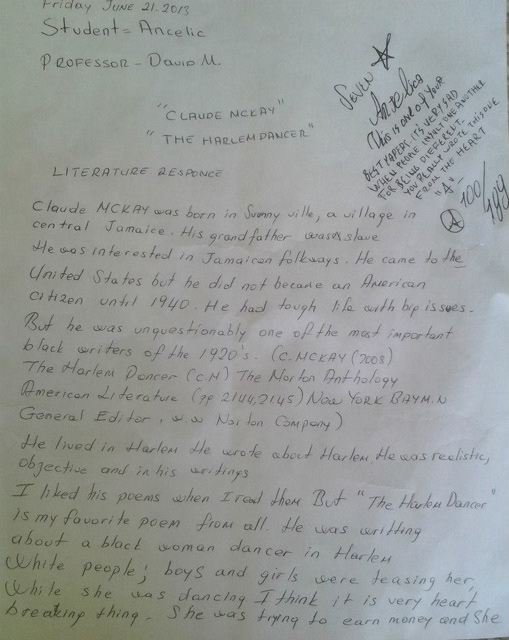 Friday JUNE 21. 2013
Student = Ancelic
PROFESSOR - David M.
SEVEN
Anzelica
This is one of your
BEST PAPERS. IT'S VERY SAD
WHEN PEOPLE INSULT ONE ANOTHER
FOR BEING DIFFERENT.
YOU REALLY WROTE THIS ONE
FROM THE HEART
"A"
A 100/
"CLAUDE MCKAY"
"THE HARLEM DANCER"
LITERATURE RESPONCE
Claude MCKAY was born in Sunny ville, a village in
central Jamaice. His grand father was slave
He was interested in Jamaican folkways. He came to the
United States but he did not became an American
citizen until 1940. He had tough life with big issues.
But he was unquestionably one of the most important
black writers of the 1920's. (C. MCKAY (2003)
The Harlem Dancer (C.M) The Norton Anthology
American Literature (pp 2144,2145) NEW YORK BAYM.N
General Editor, w w Norton Company)
He lived in Harlem He wrote about Harlem, He was realistic,
objective and in his writings
I liked his poems when I read them But "The Harlem Dancer"
is my favorite poem from all. He was writting
about a black woman dancer in Harlem
White people; boys and girls were teasing her,
While she was dancing I think it is very heart
breaking thing. She was trying to earn money and She